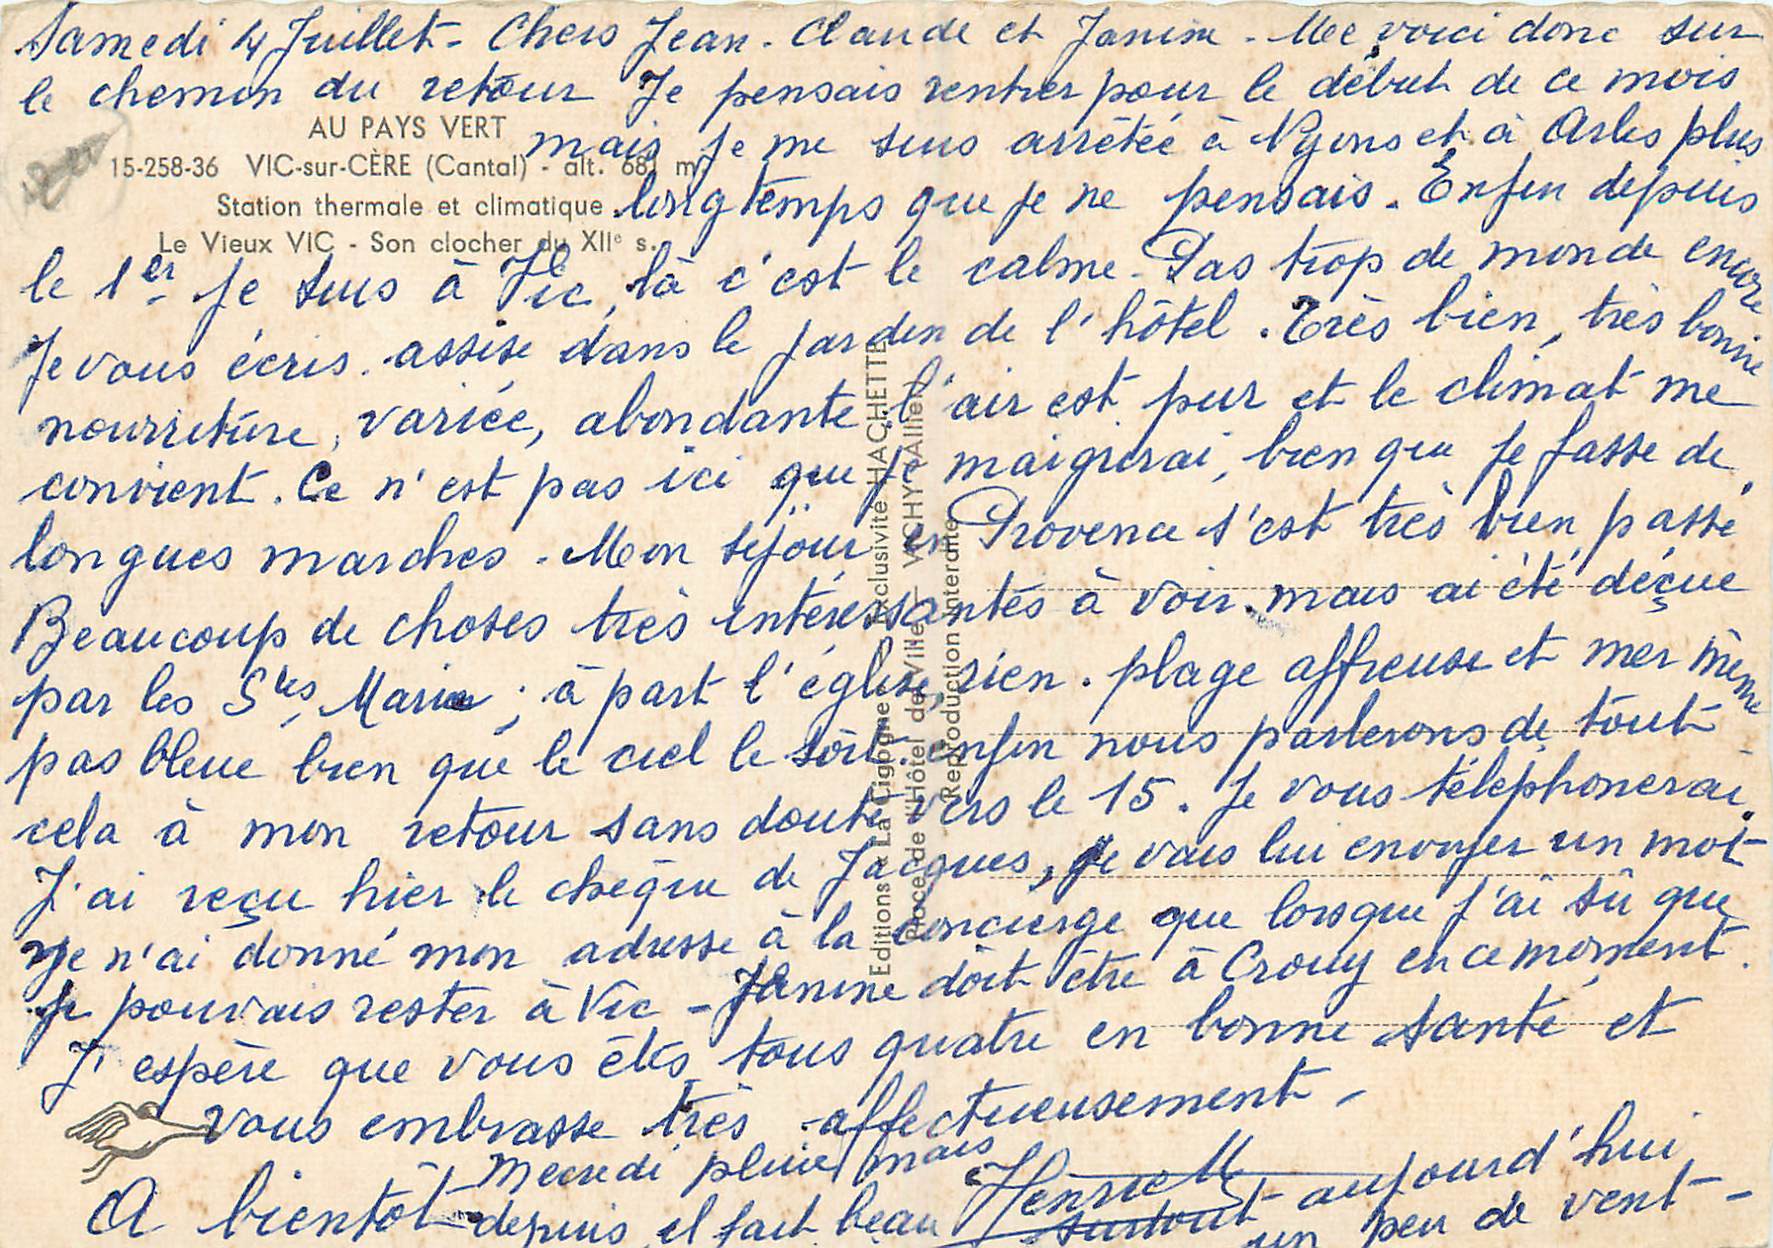 Samedi 4 Juillet - Chers Jean-Claude et Janine - Me voici donc sur
le chemin du retour Je pensais rentrer pour le début de ce mois
AU PAYS VERT
mais je me suis arrêtée à Nyons et à Arles plus
15-258-36 VIC-sur-CÈRE (Cantal) - alt. 681 m.
Station thermale et climatique
longtemps que je ne pensais. Enfin depuis
Le Vieux VIC - Son clocher du XIIe s.
le 1er je suis à Vic, là c'est le calme - Pas trop de monde encore
Je vous écris assise dans le jardin de l'hôtel. Très bien, très bonne
nourriture, variée, abondante l'air est pur et le climat me
convient. Ce n'est pas ici que je maigrirai, bien que je fasse de
longues marches - Mon séjour en Provence s'est très bien passé
Beaucoup de choses très intéressantes à voir mais ai été déçue
par les Stes Marie ; à part l'église, rien. plage affreuse et mer même
pas bleue bien que le ciel le soit. enfin nous parlerons de tout
cela à mon retour sans doute vers le 15. Je vous téléphonerai.
J'ai reçu hier le chèque de Jacques, je vais lui envoyer un mot
Je n'ai donné mon adresse à la concierge que lorsque j'ai sû que
je pouvais rester à Vic - Janine doit être à Crouy en ce moment.
J'espère que vous êtes tous quatre en bonne santé et
vous embrasse très affectueusement -
Mecredi pluie mais
Henriett
A bientôt
depuis il fait beau surtout aujourd'hui
un peu de vent -
Editions « La Cigogne » Exclusivité HACHETTE
Place de l'Hôtel de Ville - VICHY (Allier)
Reproduction Interdite